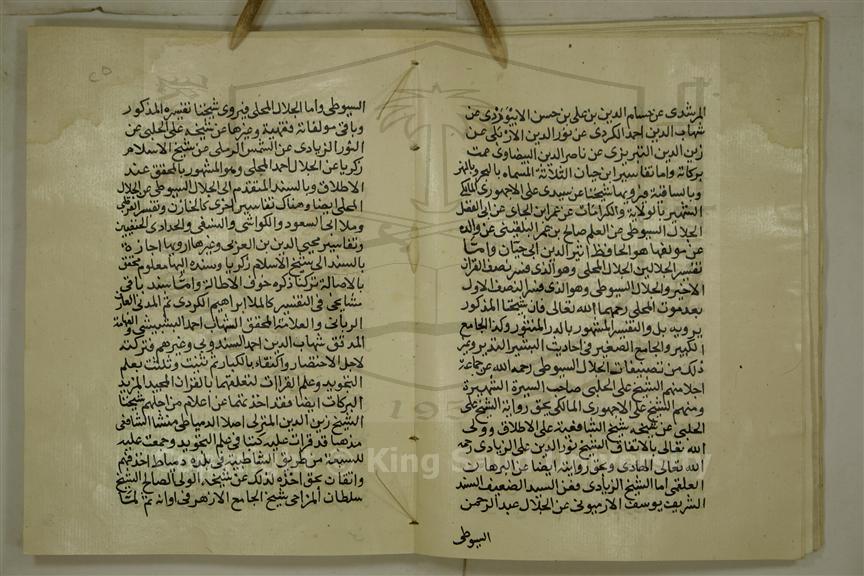 المرشدى عن حسام الدين بن على بن حسن الابيوردى عن
شهاب الدين احمد الكردى عن نور الدين الاردبيلى عن
زين الدين التبريزى عن ناصر الدين البيضاوى عمت
بركاته واما تفاسير ابن حيان الثلاثة المسماه بالبحر وبالنهر
وبالساقية فيرويها شيخنا عن سيدى على الاجهورى المالكى
الشهير بالولاية والكرامات عن عمر ابن الجاى عن ابى الفضل
الجلال السيوطى عن العلم صالح بن عمر البلقينى عن والده
عن مولفها هو الحافظ اثير الدين ابى حيان واما
تفسير الجلالين الجلال المحلى وهو الذى فسر نصف القران
الاخير والجلال السيوطى وهو الذى فسر النصف الاول
بعد موت المحلى رحمهما الله تعالى فان شيخنا المذكور
يرويه بل والتفسير المشهور بالدر المنثور وكذا الجامع
الكبير والجامع الصغير فى احاديث البشير النذير وغير
ذلك من تصنيفات الجلال السيوطى رحمه الله عن جماعة
اجلا منهم الشيخ على الحلبى صاحب السيرة الشهيرة
ومنهم الشيخ على الاجهورى المالكى بحق رواية الشيخ على
الحلبى عن شيخه شيخ الشافعية على الاطلاق وولى
الله تعالى بالاتفاق الشيخ نور الدين على الزيادى رحمه
الله تعالى الهادى وبحق روايته ايضا عن البرهان
العلقمى اما الشيخ الزيادى فعن السيد الضعيف السند
الشريف يوسف الارميونى عن الجلال عبد الرحمن
السيوطى
السيوطى واما الجلال المحلى فيروى شيخنا تفسيره المذكور
وباقى مولفاته فقهية وغيرها عن شيخه على الحلبى عن
النور الزيادى عن الشمس الرملى عن شيخ الاسلام
زكريا عن الجلال احمد المحلى وهو المشهور بالمحقق عند
الاطلاق وبالسند المتقدم الى الجلال السيوطى عن الجلال
المحلى ايضا وهناك تفاسير اخرى كالخازن وتفسير القرطبى
وملا ابا السعود والكواشى والنسفى والحدادى الحنفيين
وتفاسير محيى الدين بن العربى وغيرها ارويها اجازة
بالسند الى شيخ الاسلام زكريا وسنده اليها معلوم محقق
بالاصالة تركنا ذكره خوف الاطالة واما سند باقى
مشايخى فى التفسير كالملا ابراهيم الكردى ثم المدنى العارف
الربانى والعلامة المحقق الشهاب احمد البشبيشى والعلامة
المدقق شهاب الدين احمد السندوبى وغيرهم فتركته
لاجل الاختصار واكتفاء بالكبار ثم ثنيت وثلثت بعلم
التجويد وعلم القراات لتعلقهما بالقران المجيد المزيد
البركات ايضا فقد اخذتهما عن اعلام من اجلهم شيخنا
الشيخ زين الدين المنزلى اصلا الدمياطى منشا الشافعى
مذهبا قد قرات عليه كتبا فى علم التجويد وجمعت عليه
للسبعة من طريق الشاطبية فى بلده دمياط اخذ فهم
واتقان بحق اخذه لذلك عن شيخه الولى الصالح الشيخ
سلطان المزاحى شيخ الجامع الازهر فى اوانه ثم لما